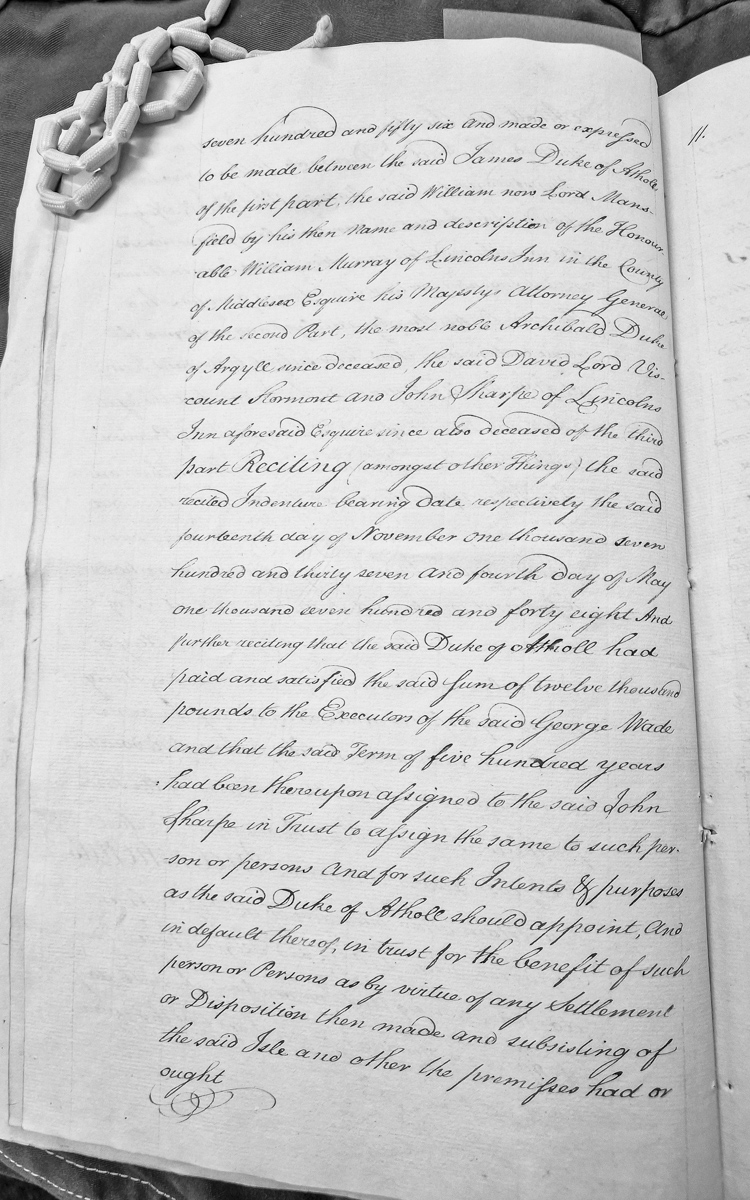 seven hundred and fifty six and made or expressed
to be made between the said James Duke of Atholl
of the first part, the said William now Lord Mans-
field by his then Name and description of the Honour-
able William Murray of Lincolns Inn in the County
of Middlesex Esquire his Majestys Attorney General
of the second Part, the most noble Archibald Duke
of Argyll since deceased, the said David Lord Vis-
count Stormont and John Sharpe of Lincolns
Inn aforesaid Esquire since also deceased of the third
part Reciting (amongst other Things) the said
recited Indenture bearing Date respectively the said
fourteenth day of November one thousand seven
hundred and thirty seven and fourth Day of May
one thousand seven hundred and forty eight And
further reciting that the said Duke of Atholl had
paid and satisfied the said Sum of twelve thousand
pounds to the Executors of the said George Wade
and that the said Term of five hundred years
had been thereupon assigned to the said John
Sharpe in Trust to assign the same to such per-
son or persons and for such Intents & purposes
as the said Duke of Atholl should appoint, And
in default thereof, in trust for the benefit of such
person or Persons as by virtue of any Settlement
or Disposition then made and subsisting of
the said Isle and other the premisses had or
ought
11.